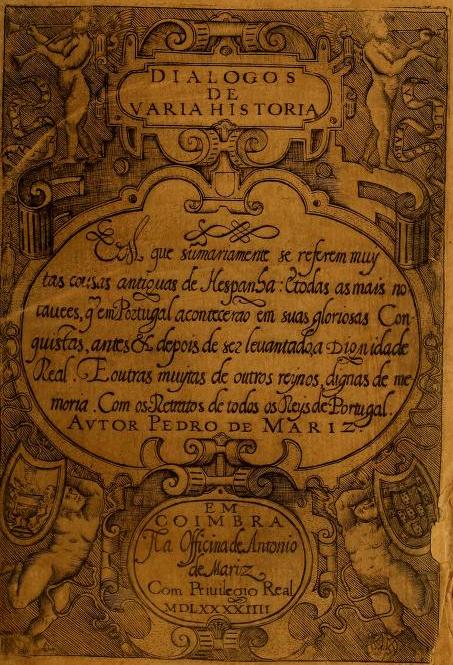 DIALOGOS
DE
VARIA HISTORIA
Em que sũmariamente se referem muy
tas cousas antiguas de Hespanha: & todas as mais no
taueẽs, q̃ em Portugal acontecerão em suas gloriosas Con
quistas, antes & depois de ser leuantado, a Dignidade
Real. E outras muytas de outros reynos, dignas de me
moria. Com os Retratos de todos os Reys de Portugal.
AVTOR PEDRO DE MARIZ.
EM
COIMBRA
Na Officina de Antonio
de Mariz
Com Priuilegio Real
MDLXXXXIIII